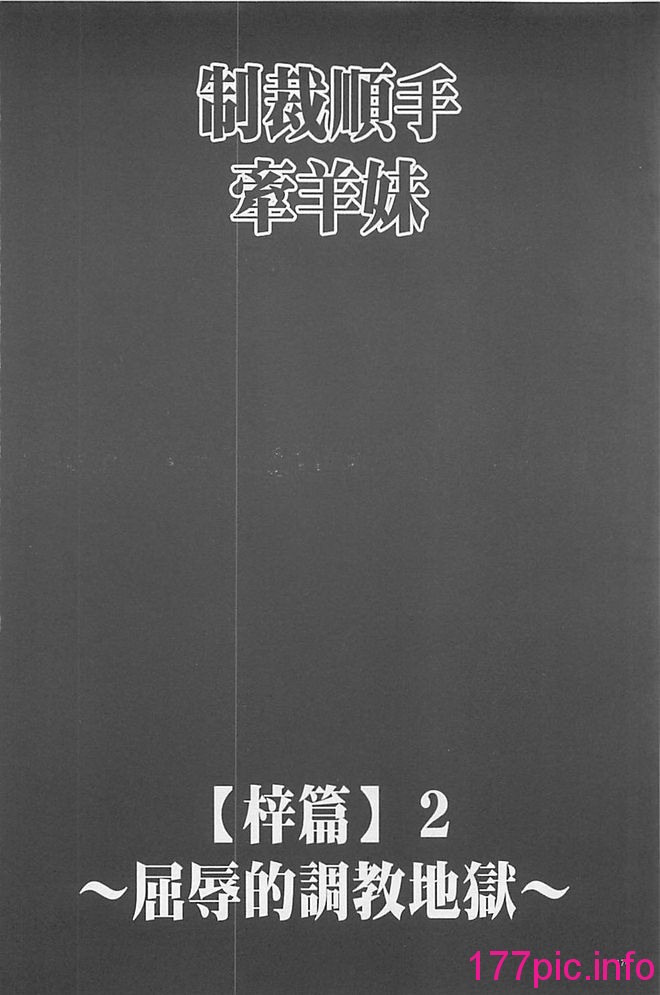 制裁順手
牽羊妹
【梓篇】2
～屈辱的調教地獄～
177pic.info